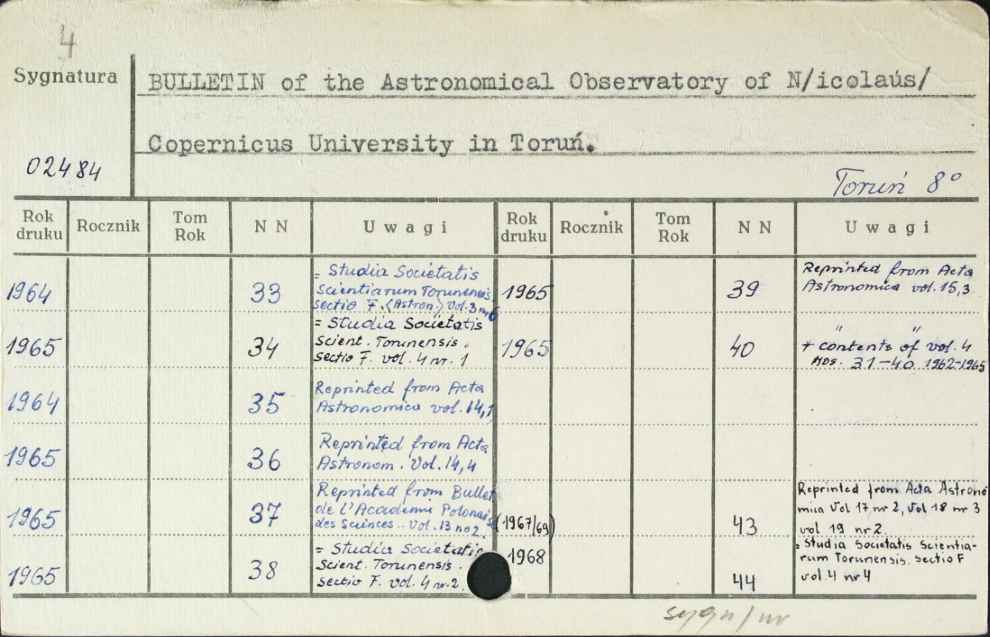 4
Sygnatura
BULLETIN of the Astronomical Observatory of N/icolaús/
Copernicus University in Toruń.
02484
Toruń 8°
Rok druku Rocznik Tom Rok N N Uwagi Rok druku Rocznik Tom Rok N N Uwagi
1964 33 = Studia Societatis
Scientiarum Torunensis,
sectio F. (Astron.) Vol. 3 nr 6
1965 34 = Studia Societatis
Scient. Torunensis.
sectio F. vol. 4 nr. 1
1964 35 Reprinted from Acta
Astronomica vol. 14,1
1965 36 Reprinted from Acta
Astronom. Vol. 14,4
1965 37 Reprinted from Bullet.
de L'Académie Polonaise
des Sciences.. Vol. 13 no 2.
1965 38 = Studia Societatis
Scient. Torunensis.
sectio F. vol. 4 nr. 2.
1965 39 Reprinted from Acta
Astronomica vol. 15,3
1965 40 + "contents of" vol. 4
Nos. 31-40 1962-1965
(1967/69) 43 Reprinted from Acta Astrono
mica Vol 17 nr 2, Vol 18 nr 3
vol 19 nr 2.
1968 44 = Studia Societatis Scientia-
rum Torunensis. sectio F
vol 4 nr 4
sygn/nr